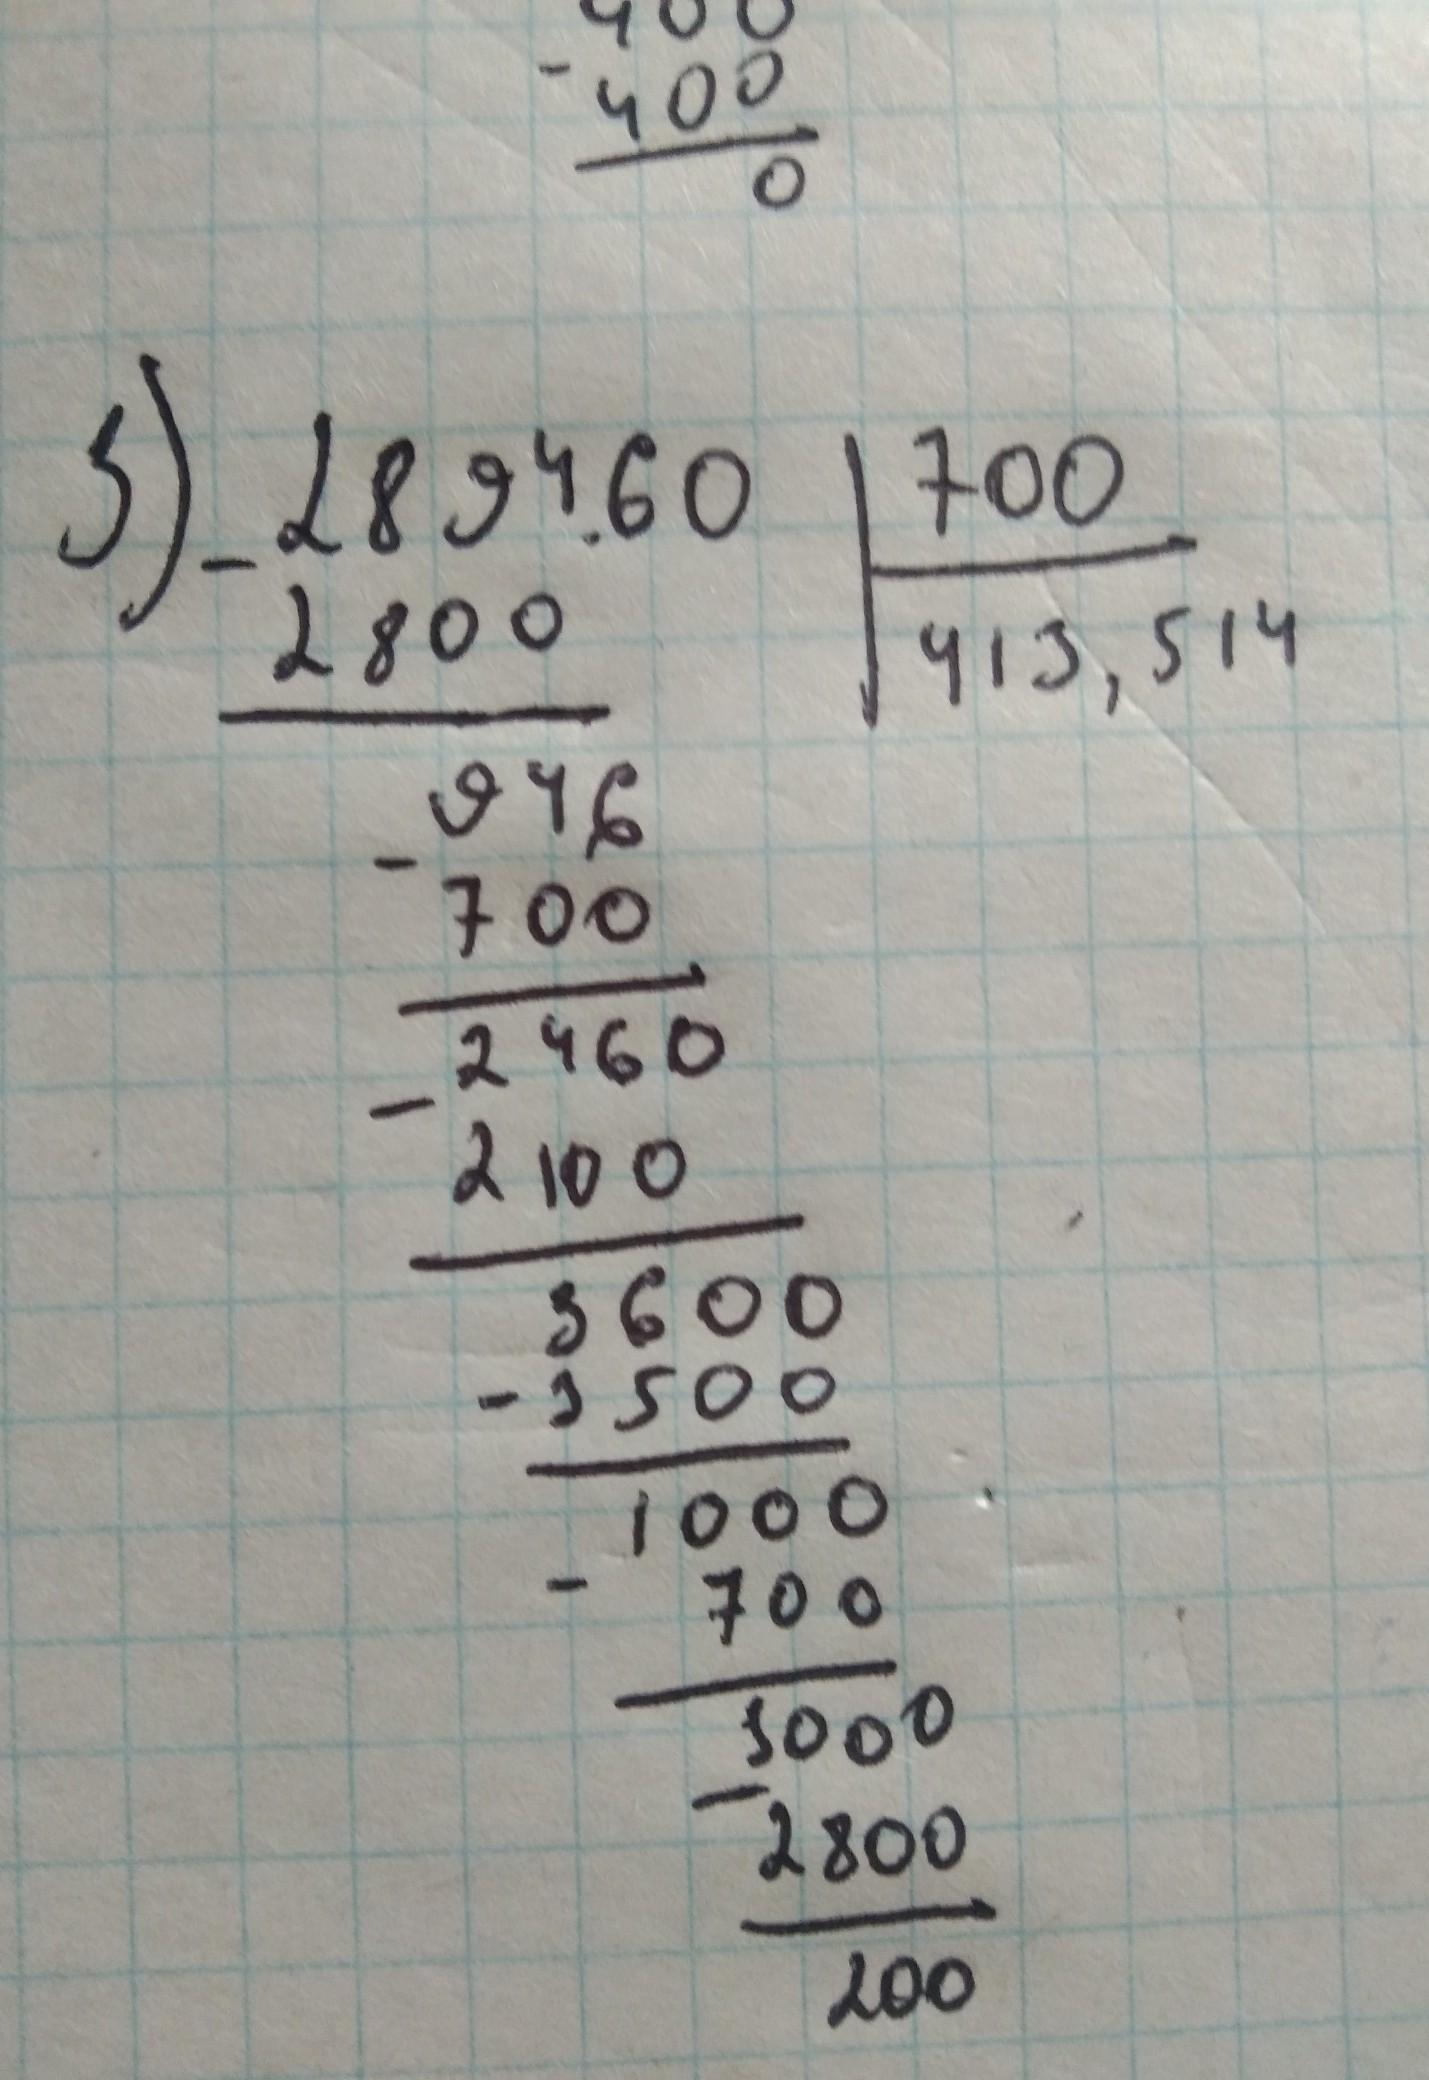 400
- 400
0
3) - 2894.60 | 700
2800 | 413,514
946
- 700
2460
- 2100
3600
- 3500
1000
- 700
3000
- 2800
200